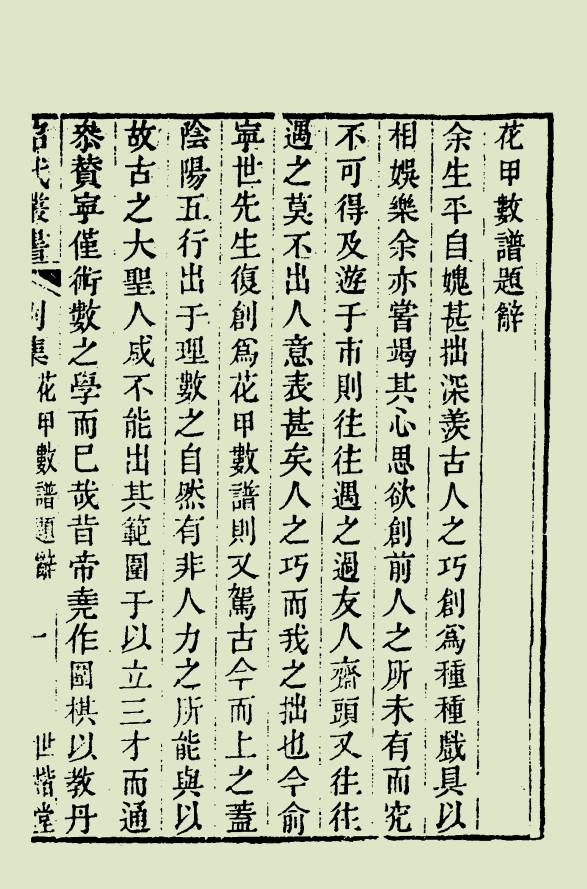 花甲數譜題辭
余生平自媿甚拙深羨古人之巧創爲種種戲具以
相娛樂余亦嘗竭其心思欲創前人之所未有而究
不可得及遊于市則往往遇之過友人齋頭又往往
遇之莫不出人意表甚矣人之巧而我之拙也今俞
寧世先生復創爲花甲數譜則又駕古今而上之蓋
陰陽五行出于理數之自然有非人力之所能與以
故古之大聖人咸不能出其範圍于以立三才而通
叅贊寧僅術數之學而已哉昔帝堯作圍棋以教丹
昭代叢書 別集 花甲數譜題辭 一 世楷堂